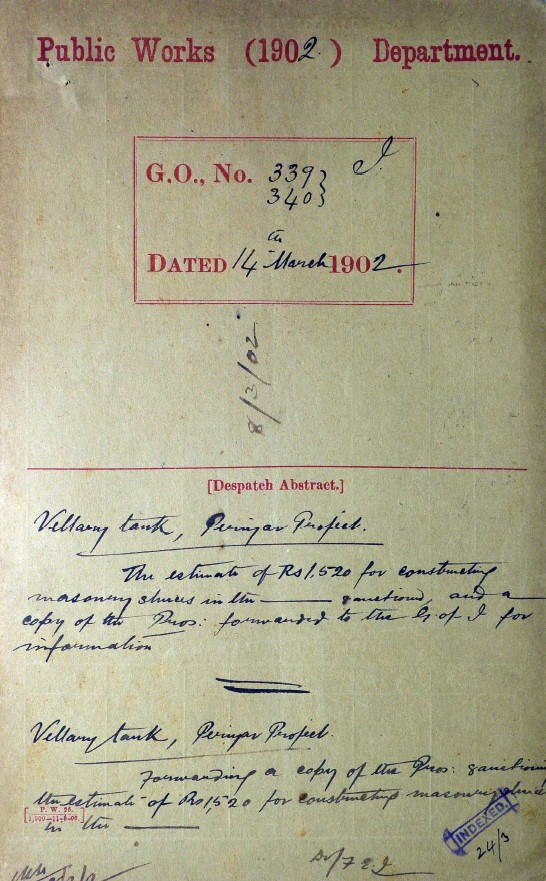 Public Works (1902.) Department.
G.O., No. 339 } I
340 }
DATED 14th March 1902.
8/3/02
[Despatch Abstract.]
Vellary tank, Periyar Project.
The estimate of Rs 1,520 for constructing
masonry sluices in the —— sanctioned, and a
copy of the Pros: forwarded to the G. of I for
information
Vellary tank, Periyar Project.
Forwarding a copy of the Pros: sanctioning
the estimate of Rs 1,520 for constructing masonry sluices
in the ——
P. W. 26.
INDEXED.
24/3